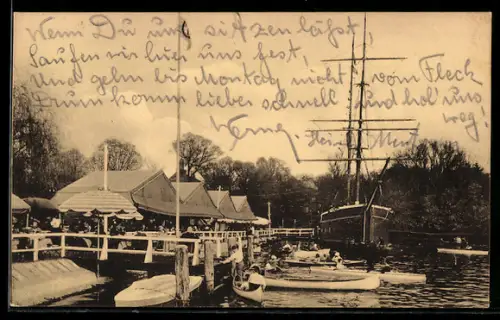 Wenn Du uns sitzen läßst,
Saufen wir hier uns fest,
Und gehn bis Montag nicht vom Fleck
Drum komm lieber schnell und hol' uns
weg!